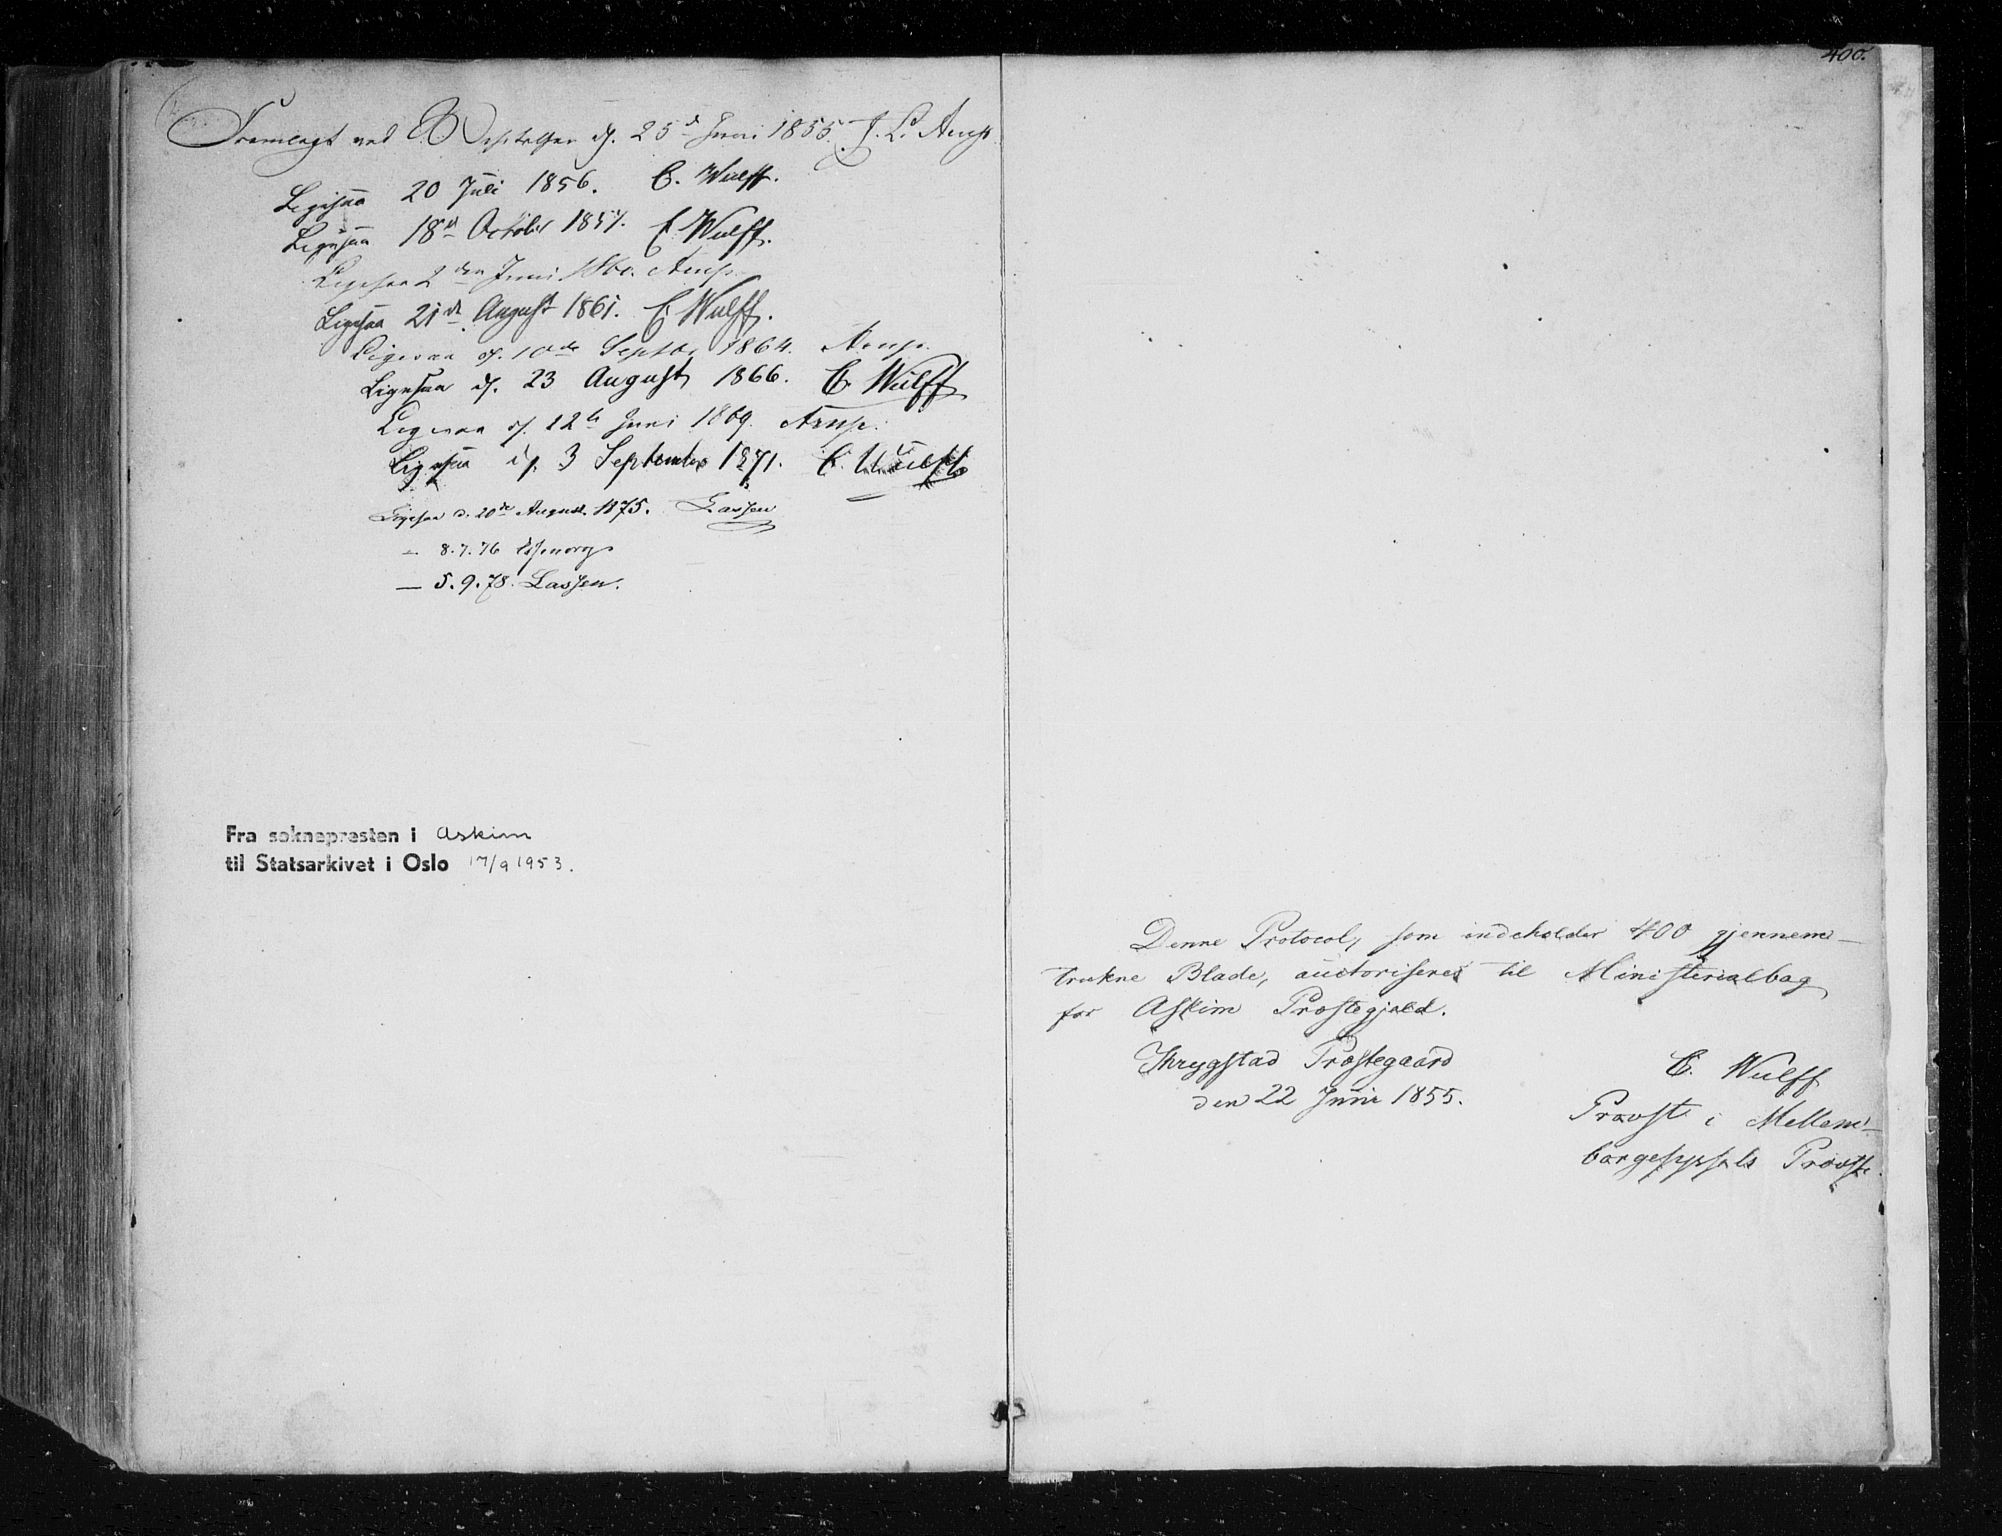 400.
Fremlagt ved Visitatsen d. 25d Juni 1855. J. L. Arup
Ligesaa 20 Juli 1856. C. Wulff.
Ligesaa 18d October 1857. C. Wulff.
Ligesaa 2den Juni 1860. Arup.
Ligesaa 21de August 1861. C. Wulff.
Ligesaa d. 10de Septbr 1864. Arup.
Ligesaa d. 23 August 1866. C. Wulff
Ligesaa d. 12te Juni 1869. Arup.
Ligesaa d. 3 September 1871. C. Wulff
Ligesaa d. 20de August 1875. Lassen
— 8.7.76 Essendrop
— 5.9.78. Lassen.
Fra soknepresten i Askim
til Statsarkivet i Oslo 17/9 1953.
Denne Protocol, som indeholder 400 gjennem-
trukne Blade, auctoriseres til Ministerialbog
for Askim Præstegjeld.
Thrygstad Præstegaard
den 22 Juni 1855.
C. Wulff
Provst i Mellem-
borgesyssels Provstie.